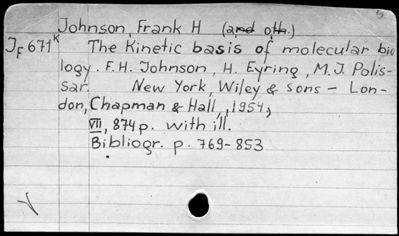 Johnson, Frank H (and oth.)
J_F 671^K The Kinetic basis of molecular bio
logy. F.H. Johnson, H. Eyring, M.J. Polis-
sar. New York, Wiley & Sons – Lon-
don, Chapman & Hall, 1954,
VII, 874 p. with ill.
Bibliogr. p. 769-853